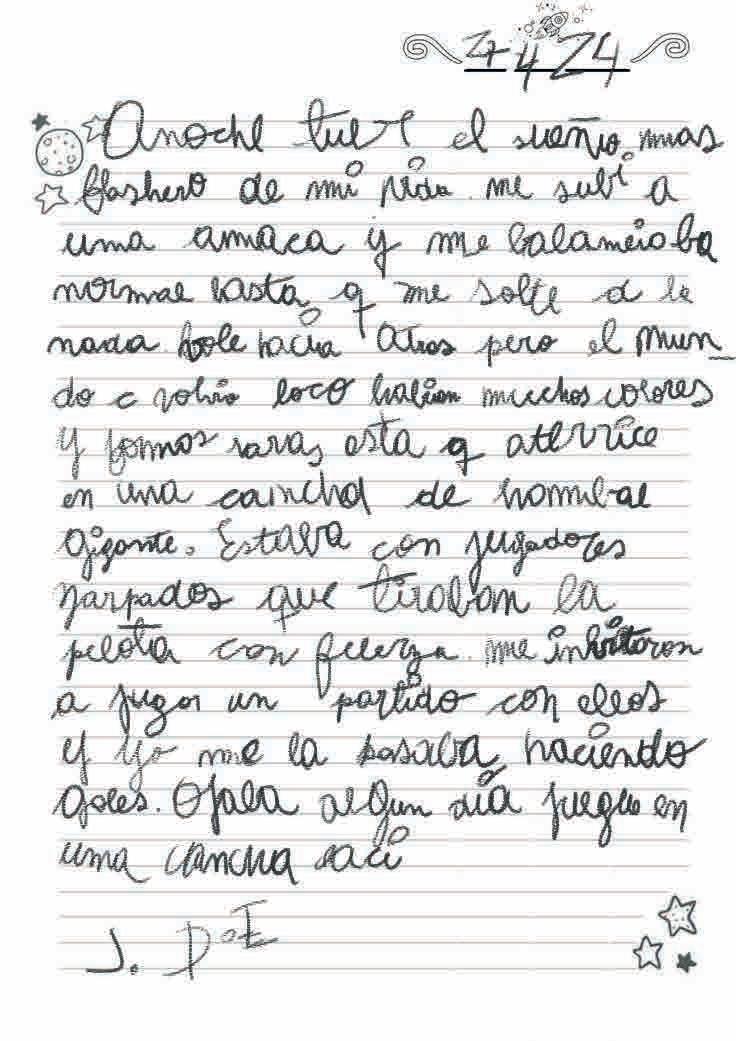 27 4 24
Anoche tuve el sueño mas
flashero de mi vida. me subi a
una amaca y me balanceaba
normal hasta q me solte d la
nada. bole hacia atras pero el mun_
do c volvio loco habian muchos colores
y formas raras, asta q aterrice
en una cancha de handbal
gigante. Estava con jugadores
zarpados que tiraban la
pelota con fuerza. me inbitaron
a jugar un partido con ellos
y yo me la pasaba haciendo
goles. Ojala algun día juegue en
una cancha haci
J. D.E